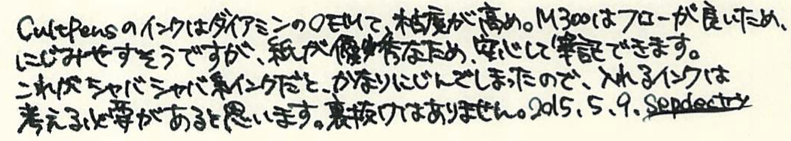 CultPensのインクはダイアミンのOEMで、粘度が高め。M300はフローが良いため、
にじみやすそうですが、紙が優秀なため、安心して筆記できます。
これがシャバシャバ系インクだと、かなりにじんでしまったので、入れるインクは
考える必要があると思います。裏抜けはありません。2015.5.9.